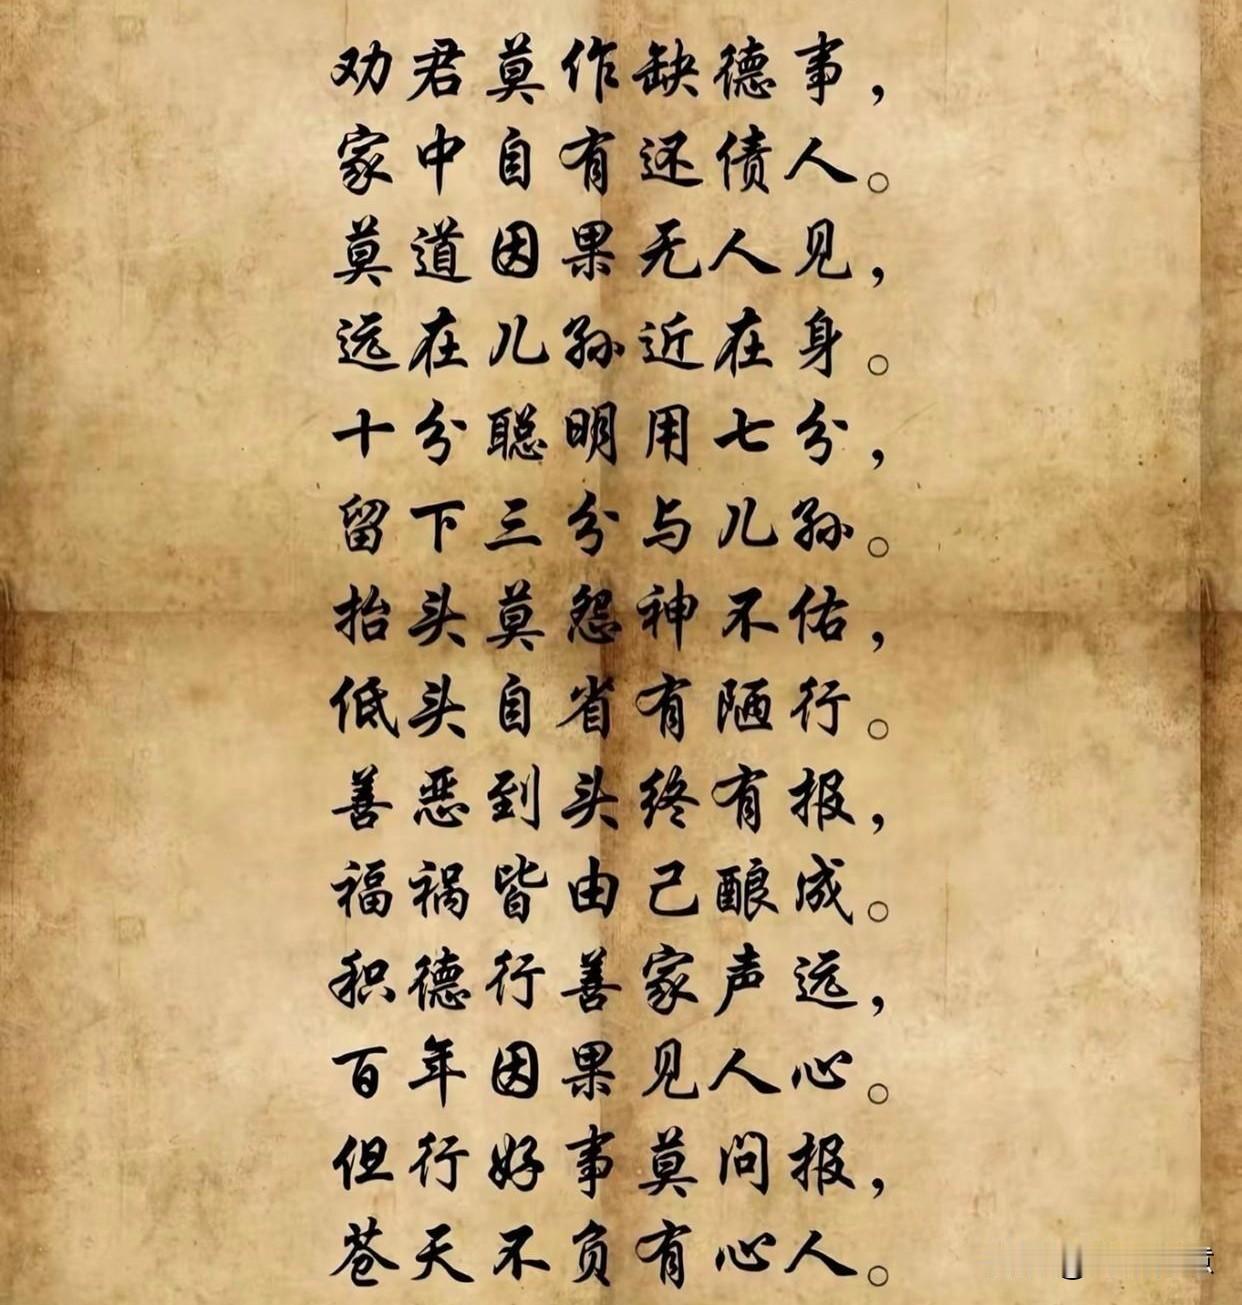 劝君莫作缺德事，
家中自有还债人。
莫道因果无人见，
远在儿孙近在身。
十分聪明用七分，
留下三分与儿孙。
抬头莫怨神不佑，
低头自省有陋行。
善恶到头终有报，
福祸皆由己酿成。
积德行善家声远，
百年因果见人心。
但行好事莫问报，
苍天不负有心人。